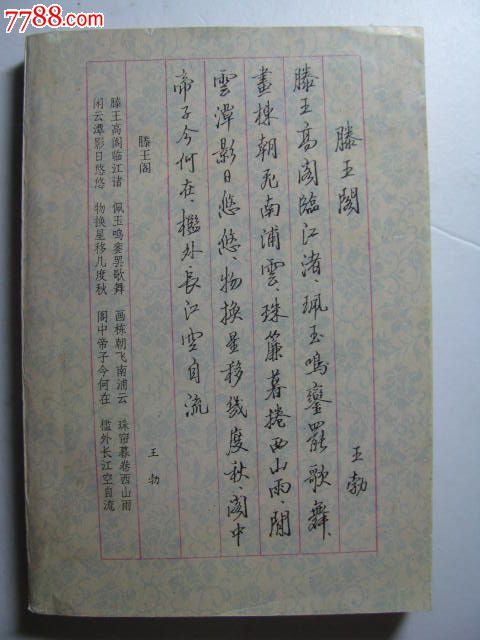 7788.com
滕王閣 王勃
滕王高阁臨江渚、珮玉鳴鑾罷歌舞、
畫棟朝飛南浦雲、珠簾暮捲西山雨、閒
雲潭影日悠悠、物換星移幾度秋、阁中
帝子今何在、檻外長江空自流
滕王阁 王勃
滕王高阁临江渚 佩玉鸣銮罢歌舞 画栋朝飞南浦云 珠帘暮卷西山雨
闲云潭影日悠悠 物换星移几度秋 阁中帝子今何在 槛外长江空自流